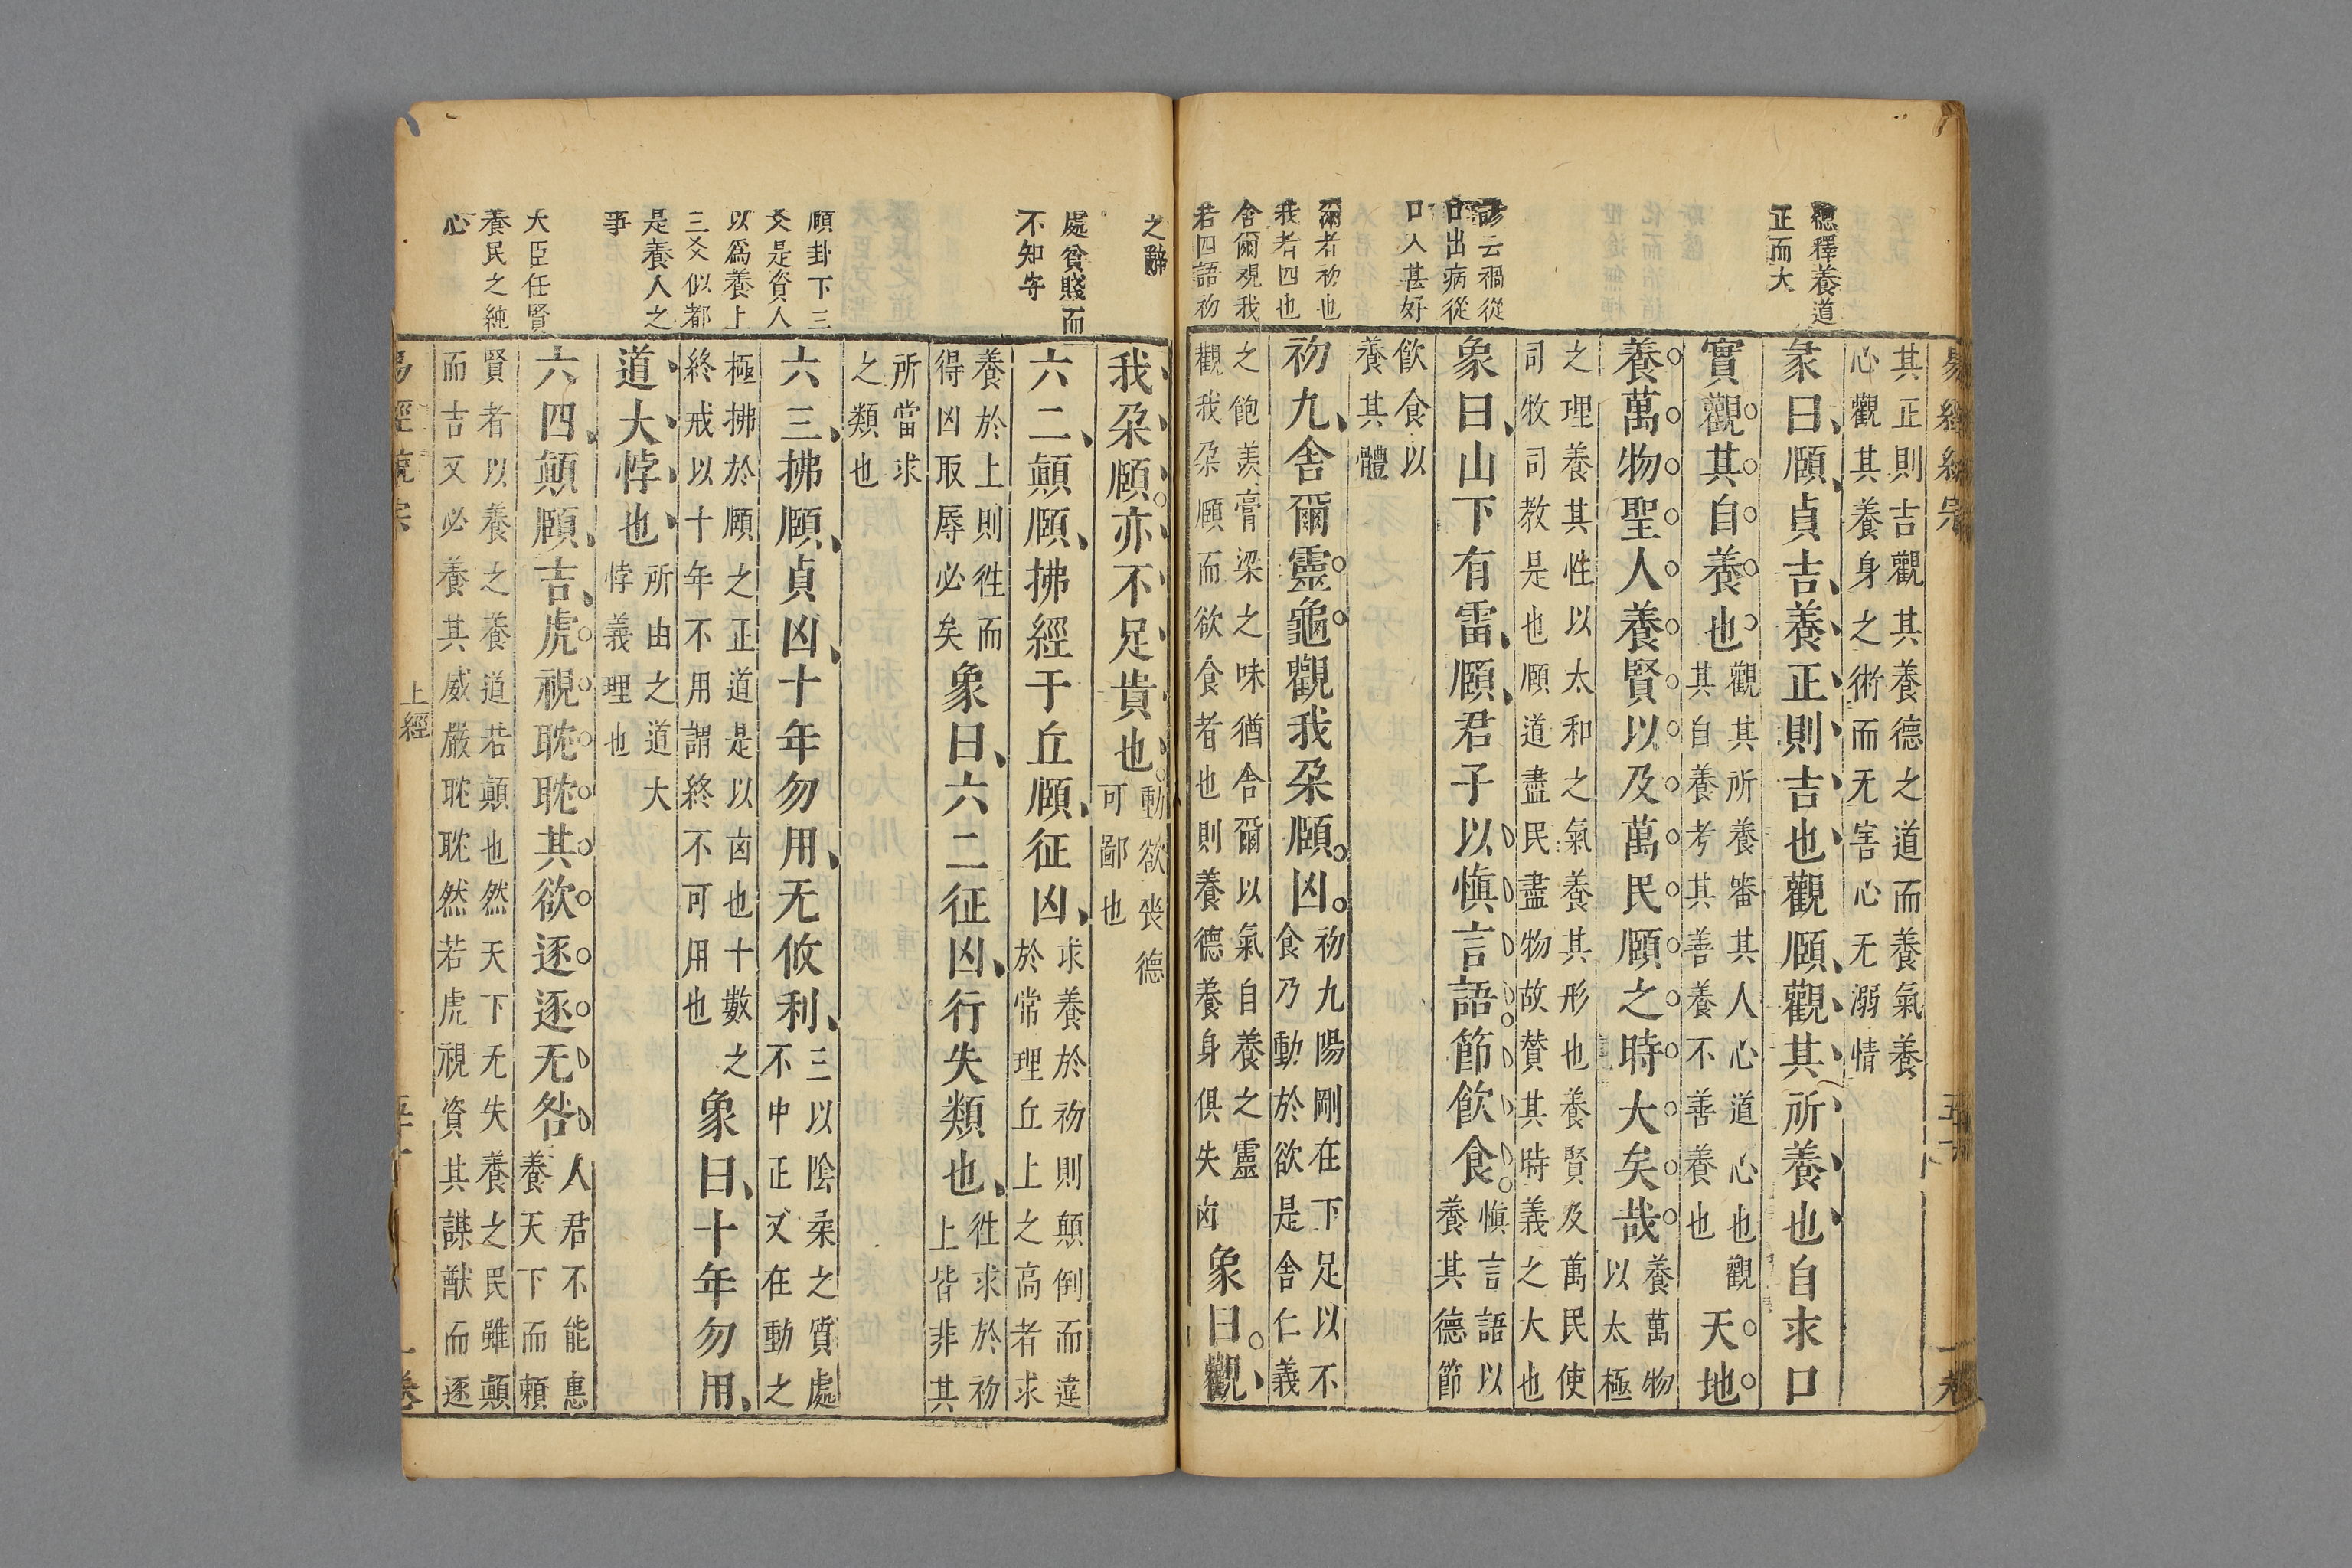 德釋養道
正而大
諺云禍從
口出病從
口入甚好
爾者初也
我者四也
舍爾觀我
若四語初
其正則吉觀其養德之道而養氣養
心觀其養身之術而无害心无溺情
彖曰頤貞吉養正則吉也觀頤觀其所養也自求口
實觀其自養也
觀其所養審其人心道心也觀
其自養考其善養不善養也
天地
養萬物聖人養賢以及萬民頤之時大矣哉
養萬物
以太極
之理養其性以太和之氣養其形也養賢及萬民使
司牧司教是也頤道盡民盡物故贊其時義之大也
象曰山下有雷頤君子以慎言語節飲食
慎言語以
養其德節
飲食以
養其體
初九舍爾靈龜觀我朶頤凶
初九陽剛在下足以不
食乃動於欲是舍仁義
之飽羡膏梁之味猶舍爾以氣自養之靈
觀我朶頤而欲食者也則養德養身俱失凶
象曰觀
之辭
處貧賤而
不知守
頤卦下三
爻是資人
以爲養上
三爻似都
是養人之
事
大臣任賢
養民之純
心
我朶頤亦不足貴也
動欲喪德
可鄙也
六二顛頤拂經于丘頤征凶
求養於初則顛倒而違
於常理丘上之高者求
養於上則徃而
得凶取辱必矣
象曰六二征凶行失類也
徃求於初
上皆非其
所當求
之類也
六三拂頤貞凶十年勿用无攸利
三以陰柔之質處
不中正又在動之
極拂於頤之正道是以凶也十數之
終戒以十年不用謂終不可用也
象曰十年勿用
道大悖也
所由之道大
悖義理也
六四顛頤吉虎視耽耽其欲逐逐无咎
人君不能惠
養天下而賴
賢者以養之養道若顛也然天下无失養之民雖顛
而吉又必養其威嚴耽耽然若虎視資其謀猷而逐
上經